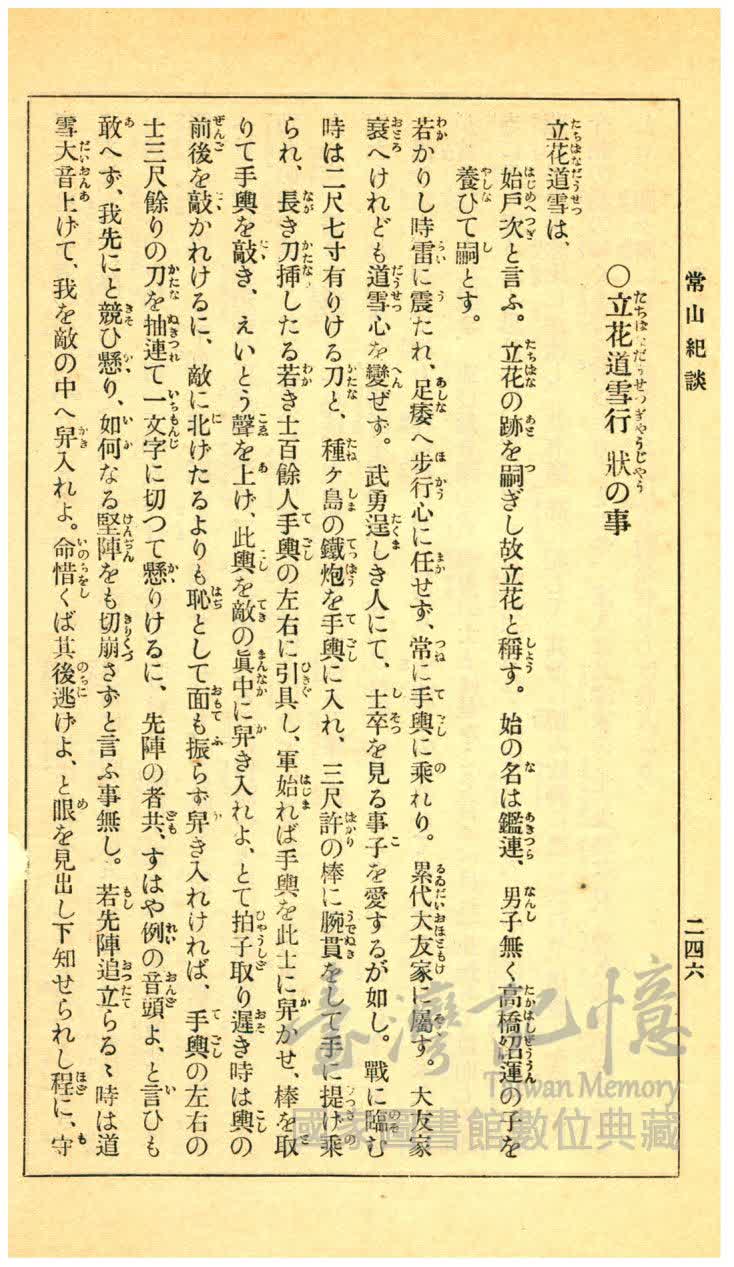 常山紀談
二四六
○立花道雪行狀の事
立花道雪は、
始戸次と言ふ。立花の跡を嗣ぎし故立花と稱す。始の名は鑑連、男子無く高橋紹運の子を
養ひて嗣とす。
若かりし時雷に震たれ、足痿へ步行心に任せず、常に手輿に乘れり。累代大友家に屬す。大友家
衰へけれども道雪心を變ぜず。武勇逞しき人にて、士卒を見る事子を愛するが如し。戰に臨む
時は二尺七寸有りける刀と、種ヶ島の鐵炮を手輿に入れ、三尺許の棒に腕貫をして手に提げ乘
られ、長き刀揷したる若き士百餘人手輿の左右に引具し、軍始れば手輿を此士に舁かせ、棒を取
りて手輿を敲き、えいとう聲を上げ、此輿を敵の眞中に舁き入れよ、とて拍子取り遲き時は輿の
前後を敲かれけるに、敵に北げたるよりも恥として面も振らず舁き入れければ、手輿の左右の
士三尺餘りの刀を抽連て一文字に切つて懸りけるに、先陣の者共、すはや例の音頭よ、と言ひも
敢へず、我先にと競ひ懸り、如何なる堅陣をも切崩さずと言ふ事無し。若先陣追立らるゝ時は道
雪大音上げて、我を敵の中へ舁入れよ。命惜くば其後逃げよ、と眼を見出し下知せられし程に、守
臺灣記憶
Taiwan Memory
國家圖書館數位典藏